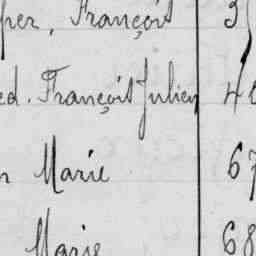 per, François 3
ed. François Julien 4
Marie 67
Marie 68